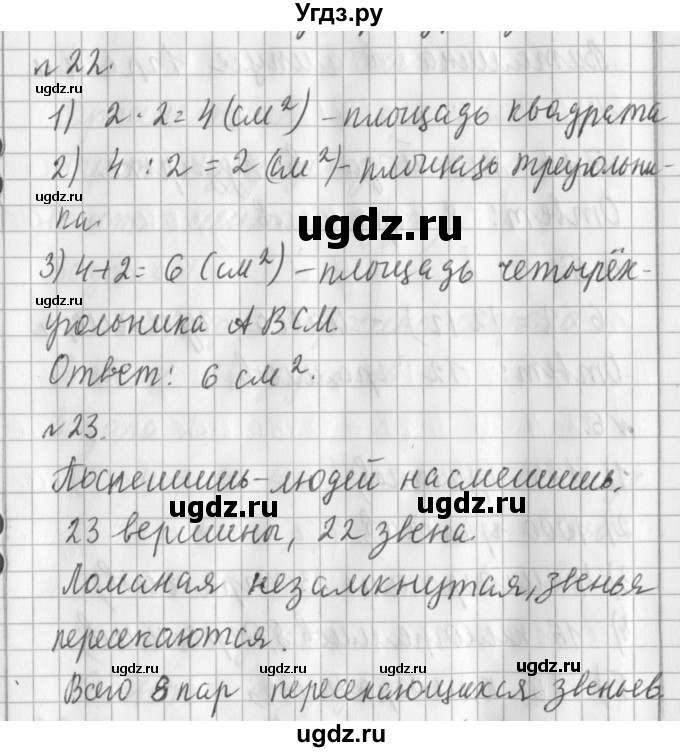 Угдз.ру
№22.
ugdz.ru ugdz.ru ugdz.ru
1) 2·2=4(см²) – площадь квадрата
2) 4:2=2(см²) – площадь треугольни-
ugdz.ru
ка. ugdz.ru ugdz.ru
3) 4+2=6(см²) – площадь четырёх-
угольника АВСМ.
ugdz.ru
Ответ: 6 см².
ugdz.ru
№23.
ugdz.ru
Поспешишь – людей насмешишь:
ugdz.ru ugdz.ru
23 вершины, 22 звена.
Ломаная незамкнутая, звенья
ugdz.ru
пересекаются.
ugdz.ru ugdz.ru ugdz.ru
Всего 8 пар пересекающихся звеньев.
ugdz.ru